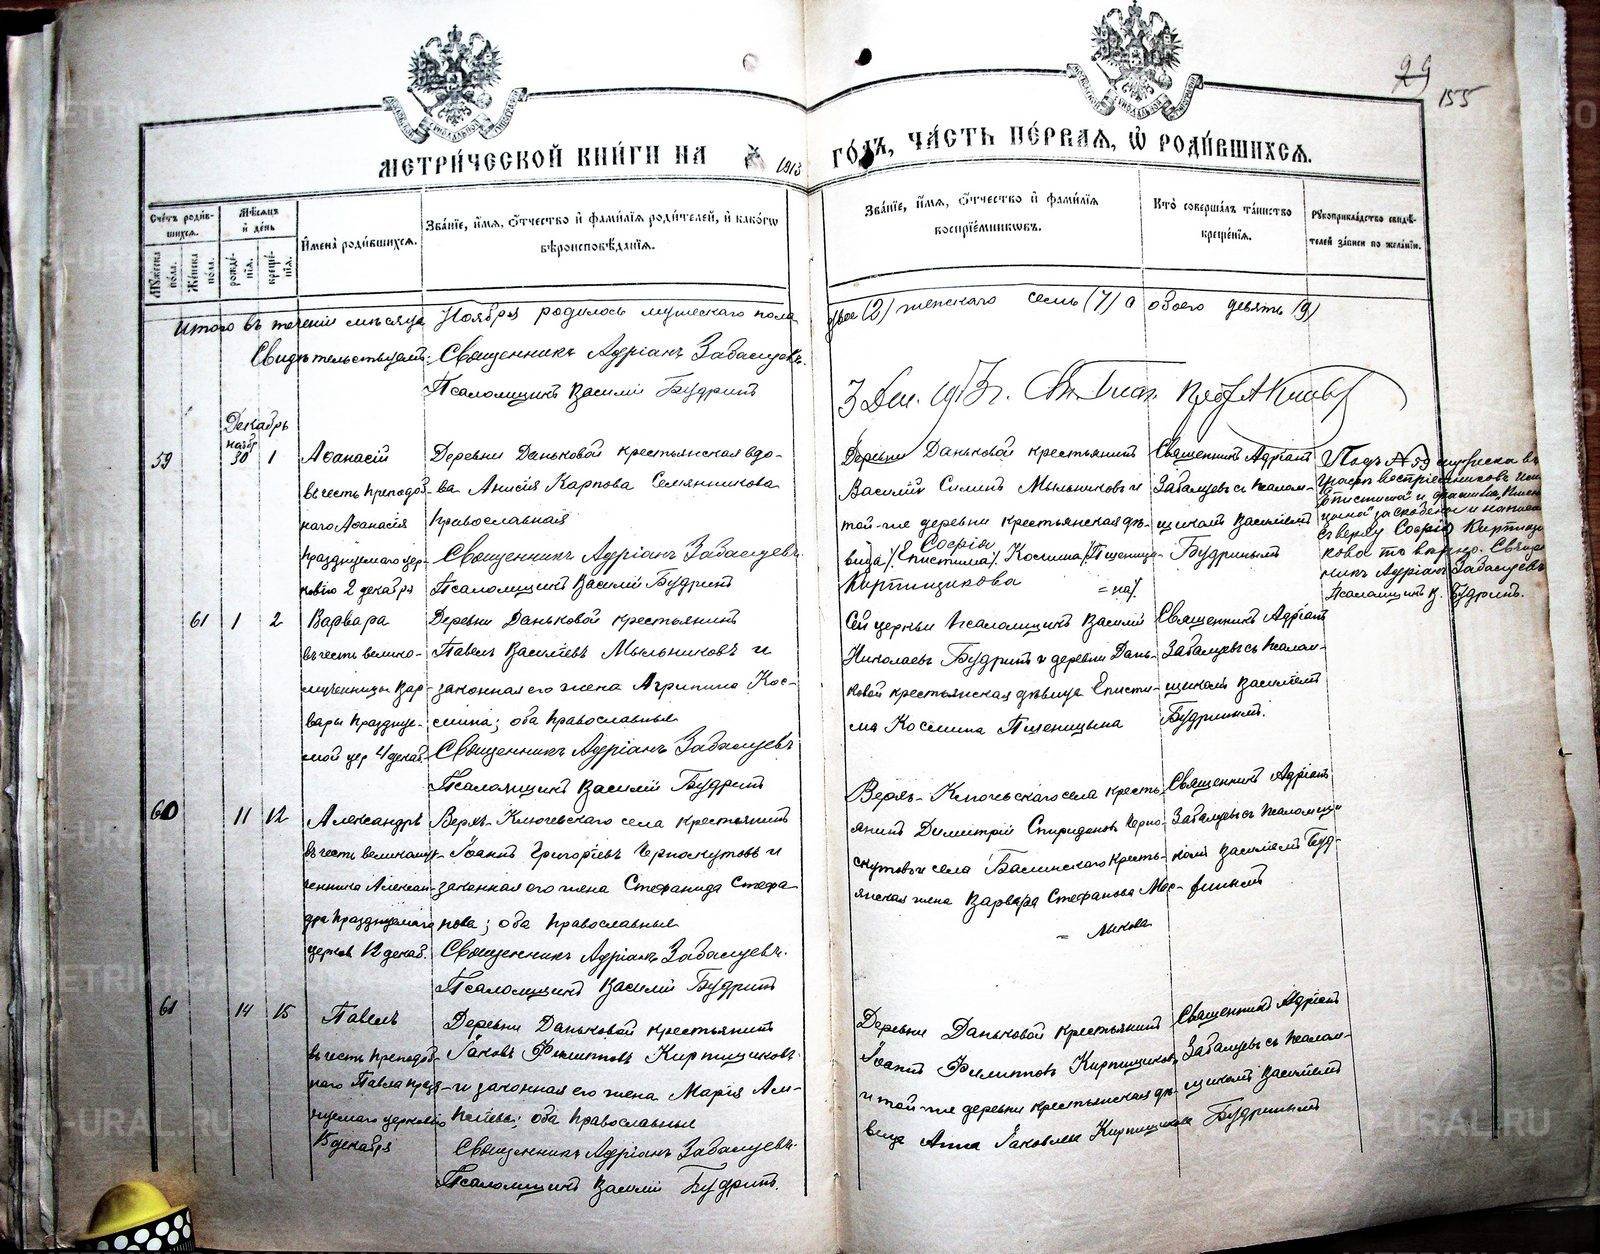 29
155
МЕТРИ́ЧЕСКОЙ КНИ́ГИ НА 1913 ГО́ДЪ, ЧА́СТЬ ПЕ́РВАЯ, Ѡ РОДИ́ВШИХСЯ.
Сче́тъ роди́вшихся.
Мꙋ́жеска по́ла.
Же́нска по́ла.
Мѣ́сяцъ и де́нь
рожде́нїя.
креще́нїя.
Имена̀ роди́вшихся.
Зва́нїе, и́мя, ѻ́тчество и фами́лїя роди́телей, и како́гѡ
вѣроисповѣ́данїя.
Зва́нїе, и́мя, ѻ́тчество и фами́лїя
воспрїе́мникѡвъ.
Кто̀ соверша́лъ та́инство
креще́нїя.
Рꙋкоприкла́дство свидѣ́-
телей за́писи по жела́нїю.
Итого въ теченіи мѣсяца Ноября родилось мужескаго пола
двое (2) женскаго семь (7) а обоего девять (9)
Свидѣтельствуютъ: Священникъ Адріанъ Забалуевъ.
Псаломщикъ Василій Будринъ
3 Дек. 1913 г.
Декабрь
нояб
59
30
1
Аѳанасій
въ честь преподоб-
наго Аѳанасія
празднуемаго цер-
ковію 2 декабря
Деревни Даньковой крестьянская вдо-
ва Анисія Карпова Семянникова
православная
Священникъ Адріанъ Забалуевъ.
Псаломщикъ Василій Будринъ
Деревни Даньковой крестьянинъ
Василій Силинъ Мыльниковъ и
той-же деревни крестьянская дѣ-
вица /Епистима/ Софія Космина /Пшеницы-
Кирпищикова = на/.
Священникъ Адріанъ
Забалуевъ съ псалом-
щикомъ Василіемъ
Будринымъ
Подъ № 59 выписка въ
графѣ воспріемниковъ имя
"Епистима" и фамилія "Пшени-
цына" за скобками и написан
сверху Софія Кирпищи-
кова то вѣрно. Свящ-
никъ Адріанъ Забалуевъ
Псаломщикъ В. Будринъ.
61
1
2
Варвара
въ честь велико-
мученицы Вар-
вары праздуе-
мой цер 4 декаб.
Деревни Даньковой крестьянинъ
Павелъ Василіевъ Мыльниковъ и
законная его жена Агрипина Кос-
мина; оба православные
Священникъ Адріанъ Забалуевъ
Псаломщикъ Василій Будринъ
Сей церкви псаломщикъ Василій
Николаевъ Будринъ и деревни Дань-
ковой крестьянская дѣвица Еписти-
ма Космина Пшеницына
Священникъ Адріанъ
Забалуевъ съ псалом-
щикомъ Василіемъ
Будринымъ.
60
11
12
Александръ
въ честь великому-
ченника Алексан-
дра празднуемаго
церков 12 декаб.
Верхъ-Ключевскаго села крестьянинъ
Іоаннъ Григоріевъ Черноскутовъ и
законная его жена Стефанида Стефа-
нова; оба православные
Священникъ Адріанъ Забалуевъ.
Псаломщикъ Василій Будринъ
Верхъ-Ключевскаго села кресть-
янинъ Димитрій Спиридоновъ Черно-
скутовъ и села Багинскаго кресть-
янская жена Варвара Стефанова Мас-
= лыкова
Священникъ Адріанъ
Забалуевъ съ псаломщи-
комъ Василіемъ Буд-
ринымъ
61
14
15
Павелъ
въ честь преподоб-
наго Павла празд-
нуемаго церковію
15 декабря
Деревни Даньковой крестьянинъ
Іаковъ Филипповъ Кирпищиковъ
и законная его жена Марія Али-
піева; оба православные
Священникъ Адріанъ Забалуевъ.
Псаломщикъ Василій Будринъ.
Деревни Даньковой крестьянинъ
Іоаннъ Филипповъ Кирпищиковъ
и той-же деревни крестьянская дѣ-
вица Анна Іаковлева Кирпищикова
Священникъ Адріанъ
Забалуевъ съ псалом-
щикомъ Василіемъ
Будринымъ